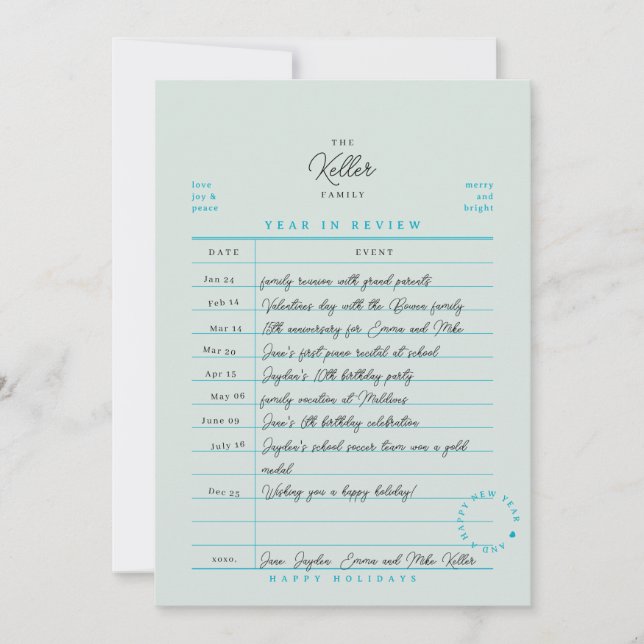 THE
Keller
FAMILY
love
joy &
peace
merry
and
bright
YEAR IN REVIEW
DATE EVENT
Jan 24 family reunion with grand parents
Feb 14 Valentines day with the Bowen family
Mar 14 15th anniversary for Emma and Mike
Mar 20 Jane's first piano recital at school
Apr 15 Jaydan's 10th birthday party
May 06 family vocation at Maldives
June 09 Jane's 6th birthday celebration
July 16 Jayden's school soccer team won a gold
medal
Dec 25 Wishing you a happy holiday!
AND A HAPPY NEW YEAR
xoxo, Jane Jayden Emma and Mike Keller
HAPPY HOLIDAYS